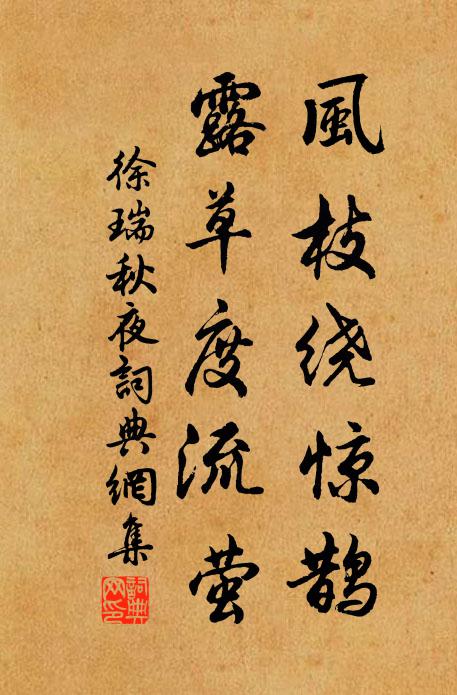 風枝绕惊鹊
露草度流萤
徐瑞秋夜詞典網集
詞典网印